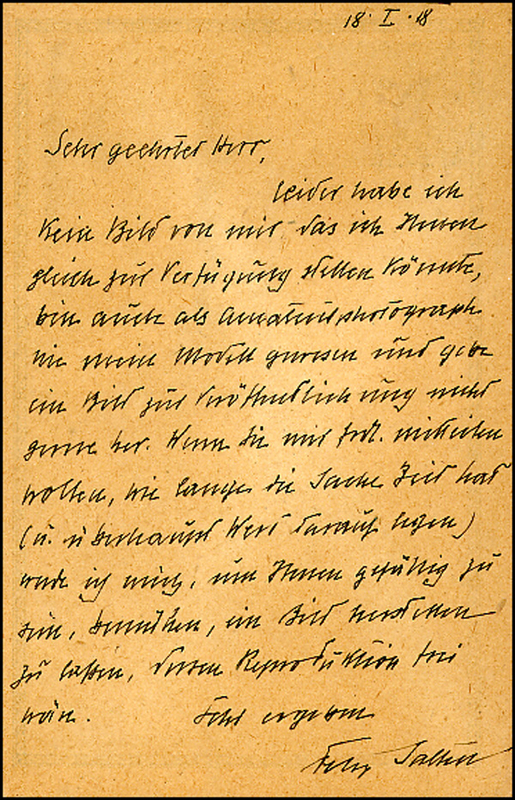 18. I. 18
Sehr geehrter Herr,
leider habe ich
kein Bild von mir, das ich Ihnen
gleich zur Verfügung stellen könnte,
bin auch als Amateurphotograph
nie mein Modell gewesen und gebe
ein Bild zur Veröffentlichung nicht
gerne her. Wenn Sie mir frdl. mitteilen
wollen, wie lange die Sache Zeit hat
(u. überhaupt Wert darauf legen)
werde ich mich, um Ihnen gefällig zu
sein, bemühen, ein Bild herstellen
zu lassen, dessen Reproduktion frei
wäre. Sehr ergeben
Felix Salten